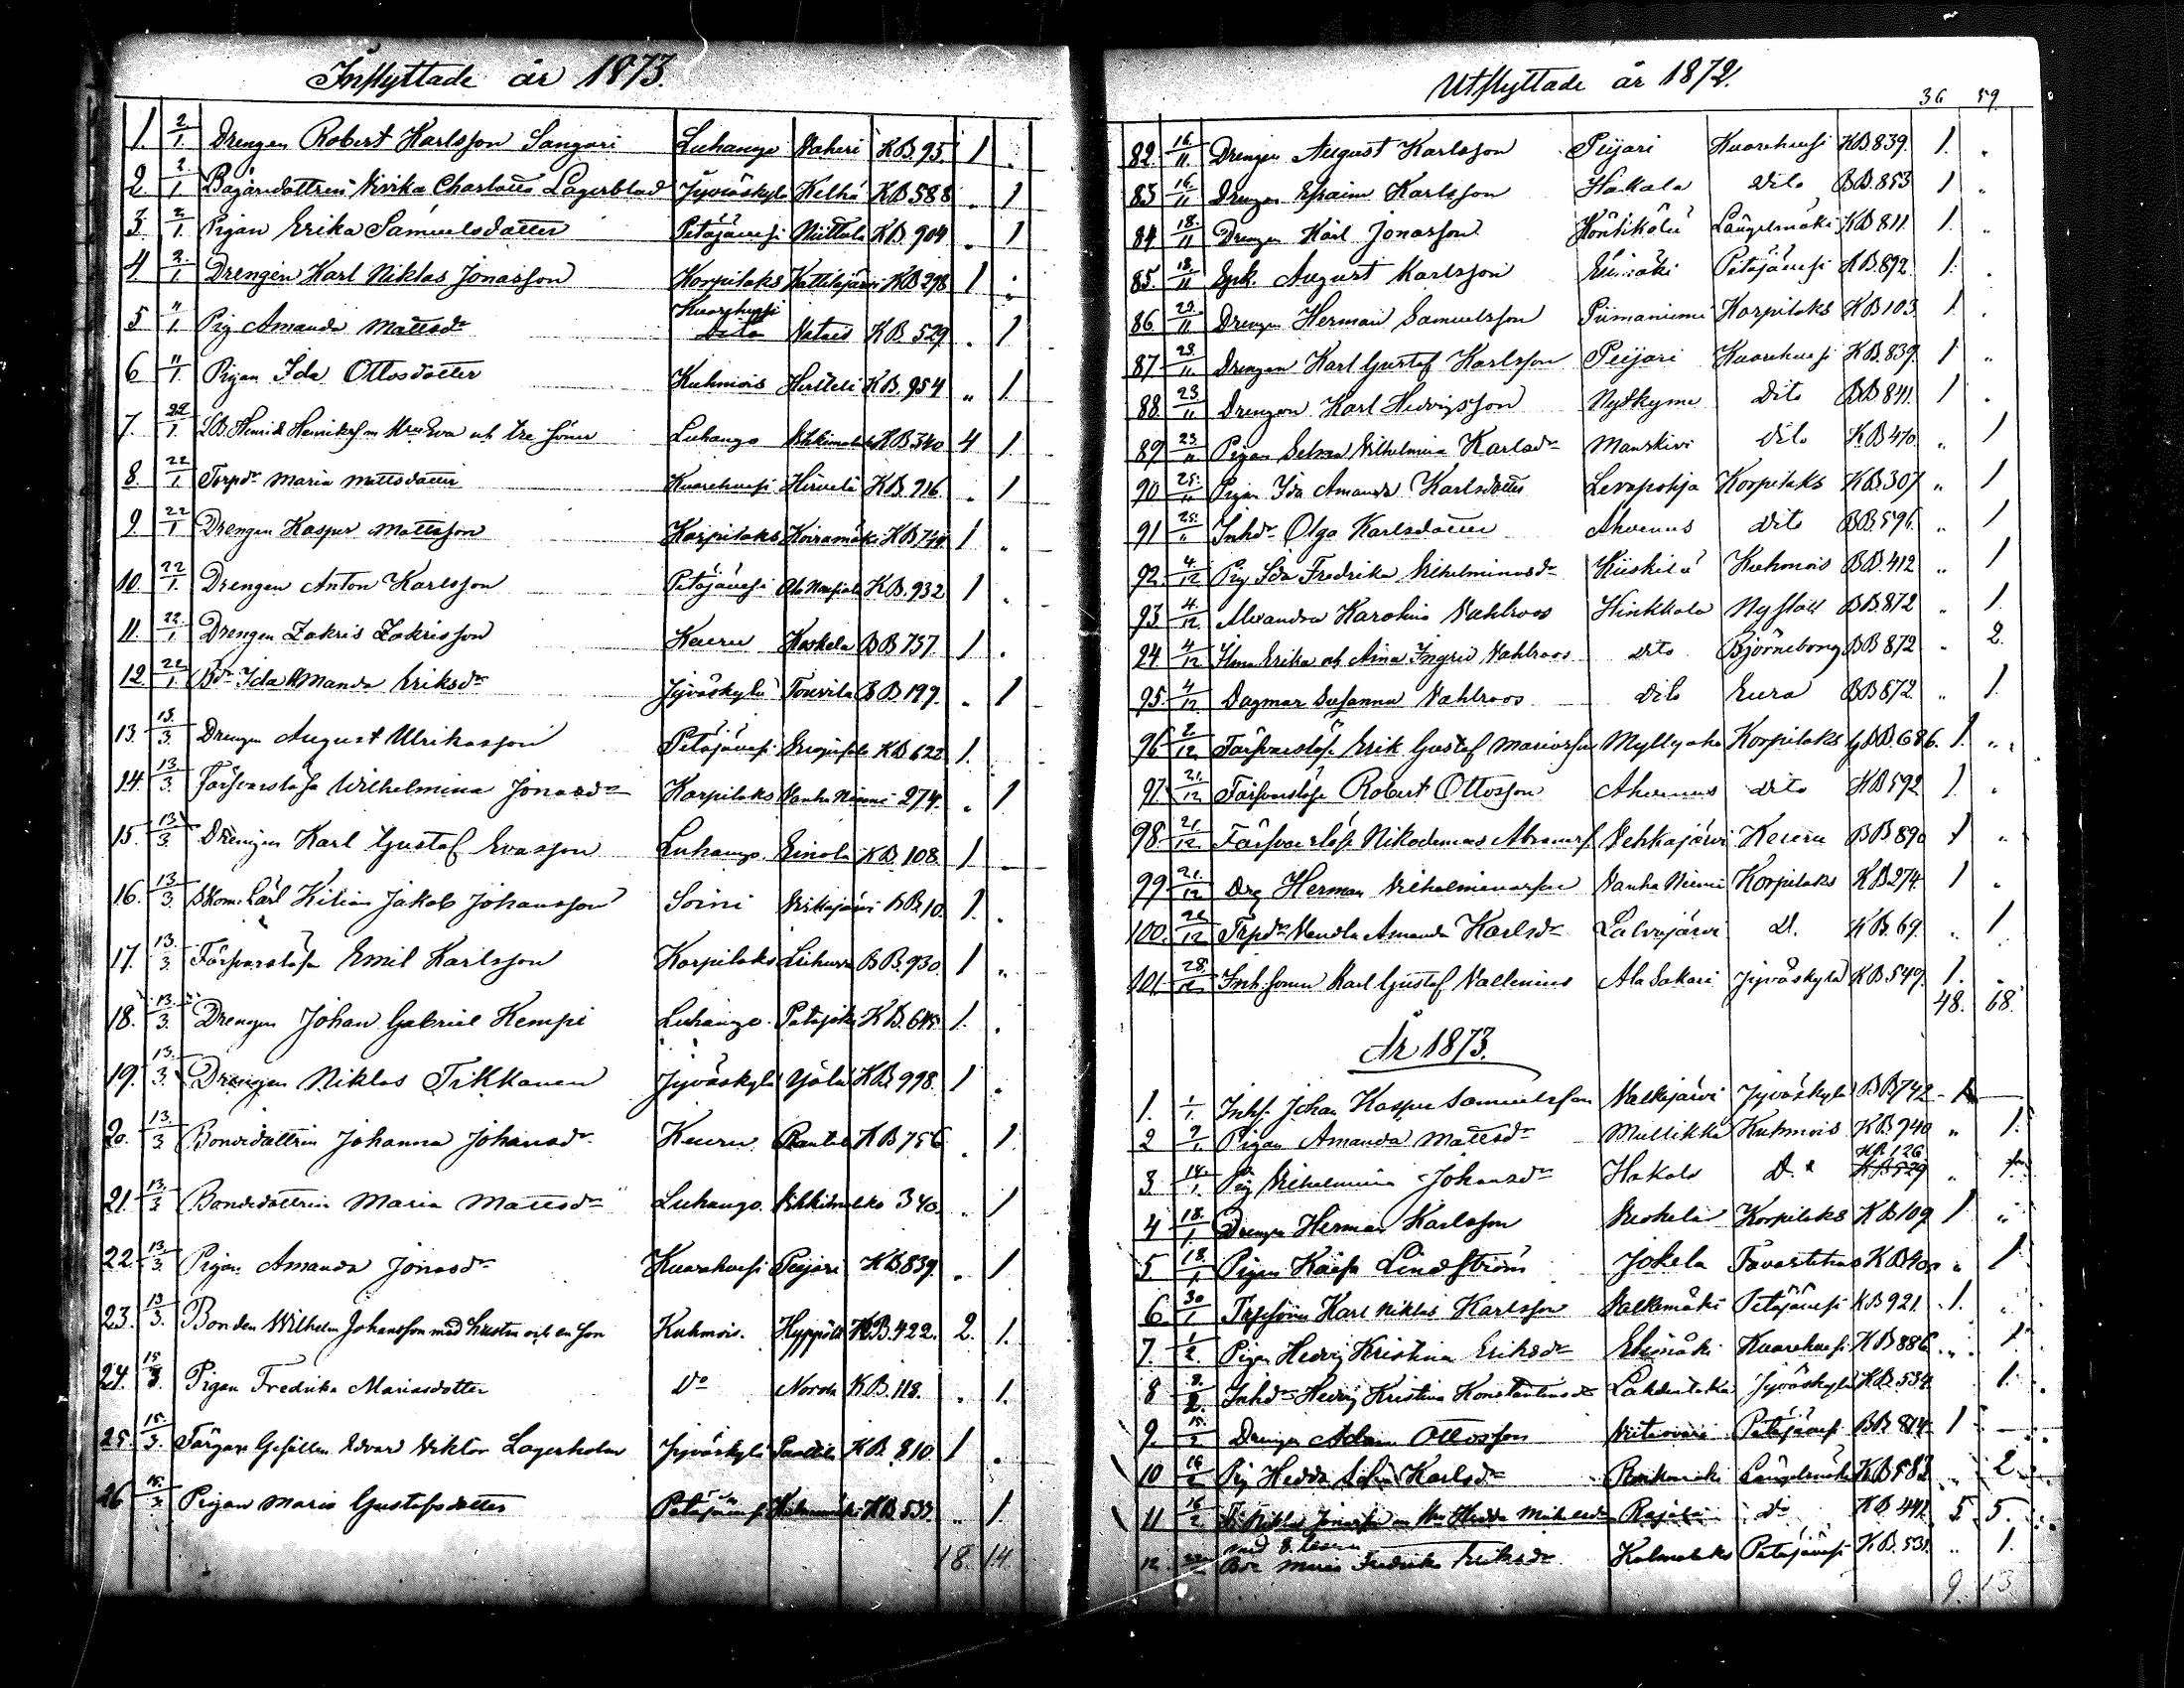 Inflyttade år 1873.
1. 2/1. Drengen Robert Karlsson Sangari Luhango Vaheri KB. 95. 1 .
2. 2/1 Lagerblad Jyväskylä KB 588 . 1
3. 2/1. Pigan Erika Samuelsdotter Petäjävesi Niittula KB. 904 . 1
4. 2./1 Drengen Karl Niklas Jonasson Korpilaks KB 298 1 .
Kuorehvesi
5 11/1 Pig Amanda Mattsdr Dito KB. 529. . 1
6 11/1. Pigan Ida Ottosdotter Kuhmois KB. 954 " 1
7. 22/1. Henrik Henriksson m Hru Eva och tre söner Luhango KB 340 4 1
8. 22/1 Torpdr Maria Mattsdotter Kuorehvesi Hirvelä KB. 916. . 1
9. 22/1 Drengen Kasper Mattsson Korpilaks Koiramäki KB 744. 1 .
10. 22/1. Drengen Anton Karlsson Petäjävesi KB. 932 1 .
11. 22./1 Drengen Zakris Zakrisson Keuru Koskela BB 757. 1 .
12. 22/1 Bdr Ida Amanda Eriksdr Jyväskylä Tourila BB 199. . 1
13. 13./3. Drengen August Ulrikasson Petäjävesi KB 622 1.
14. 13./3. Försvarslösa Wilhelmina Jonasdr Korpilaks Vanha Niemi 274. . 1
15. 13/3. Drengen Karl Gustaf Evasson Luhango Einola KB. 108. 1
16. 13/3. Kilian Jakob Johansson Soini BB. 10. 1. .
17. 13./3. Försvarslösa Emil Karlsson Korpilaks BB. 930. 1 "
18. 13./3. Drengen Johan Gabriel Kempi Luhango KB. 645. 1. .
19. 13./3. Drengen Niklas Tikkanen Jyväskylä KB. 998. 1 .
20. 13/3 Bondedottren Johanna Johansdr Keuru KB 756 . 1.
21. 13./3 Bondedottren Maria Mattsdr Luhango 340. . 1
22. 13./3. Pigan Amanda Jonasdr Kuorehvesi Peijari KB 839. . 1
23. 13/3. Bonden Wilhelm Johansson med hustru och en son Kuhmois. KB. 422. 2. 1.
24. 15/3. Pigan Fredrika Mariasdotter Do KB. 118. . 1.
25. 15./3. Färgare Gesällen Edvard Viktor Lagerholm Jyväskylä KB. 810 1 .
26 15./3. Pigan Maria Gustafsdotter Petäjävesi KB. 533. " 1.
18. 14.
Utflyttade år 1872.
36 59
82. 16/11. Drengen August Karlsson Peijari Kuorehvesi KB 839. 1. .
83 16./11 Drengen Efraim Karlsson Hakala Dito BB. 853 1 .
84 18./11 Drengen Karl Jonasson Längelmäki KB 811. 1. .
85. 18./11 August Karlsson Petäjävesi KB. 892. 1. .
86 23./11 Drengen Herman Samuelsson Piimaniemi Korpilaks KB 103. 1 .
87. 23./11 Drengen Karl Gustaf Karlsson Peijari Kuorehvesi KB. 839. 1 "
88. 23/11 Drengen Karl Hedvigsson Nyskyme Dito BB 841. 1 .
89. 23/11 Pigan Selma Vilhelmina Karlsdr Dito KB 470. " 1
90 25./11 Pigan Ida Amanda Karlsdotter Levapohja Korpilaks KB. 307 " 1
91 25./11 Inhdr Olga Karlsdotter Ahvenus Dito BB 596. " 1
92. 4./12 Pig Ida Fredrika Vilhelminasdr Kiiskilä Kuhmois BB. 412 " 1
93. 4./12. Alexandra Karolina Vahlroos Hinkkala Nystad BB. 872 " 1.
94 4/12 Ilma Erika och Aina Ingrid Vahlroos Dito Björneborg BB 872 " 2.
95. 4/12. Dagmar Susanna Vahlroos Dito Eura BB 872. " 1.
96 2/12 Försvarslöse Erik Gustaf Mariasson Myllyaho Korpilaks BB. 686. 1. "
97. 21./12 Försvarslöse Robert Ottosson Ahvenus Dito KB 592 1. .
98. 21/12 Försvarslöse Nikodemus Abramss. Vehkajärvi Keuru BB 890 1 "
99 21./12 Dreg Herman Vilhelminasson Vanha Niemi Korpilaks KB 274. 1 .
100. 21/12 Trpdr Vendla Amanda Karlsdr D. KB. 69. . 1
101. 28./12 Inh. sonen Karl Gustaf Vallenius Ala Sakari Jyväskylä KB. 549. 1. .
48. 68.
År 1873.
1. 1/1. Inhs. Johan Kasper Samuelsson Valkijärvi Jyväskylä BB 742 - 1
2 9/1. Pigan Amanda Mattsdr Mullikka Kuhmois KB. 940 " 1.
3. 14./1. Pig Vilhelmina Johansdr Hakala D. KB 529 KB 126 " 1.
4 18./1 Drengen Herman Karlsson Korpilaks KB 109. 1 "
5 18./1 Pigan Kaisa Lindström Jokela Tavastehus KB 40. " 1
6. 30/1 Trpsonen Karl Niklas Karlsson Valkemäki Petäjävesi KB 921. 1. "
7. 1/2. Pigan Hedvig Kristina Eriksdr Kuorehvesi KB 886. " 1.
8 9./2. Inhdr Hedvig Kristina Konstantinsdr Jyväskylä KB. 534. 1.
9. 15./2 Drengen Adam Ottosson Petäjävesi BB 814. 1
10 16/2 Pig Hedda Sofia Karlsdr Längelmäki KB 582 . 2
11 16/2. Niklas Jonasson m Hru Hedda Rajala Do KB 441. 5 5.
med 8.
12. Bdr Maria Fredrika Eriksdr Petäjävesi KB. 531. " 1.
9. 13